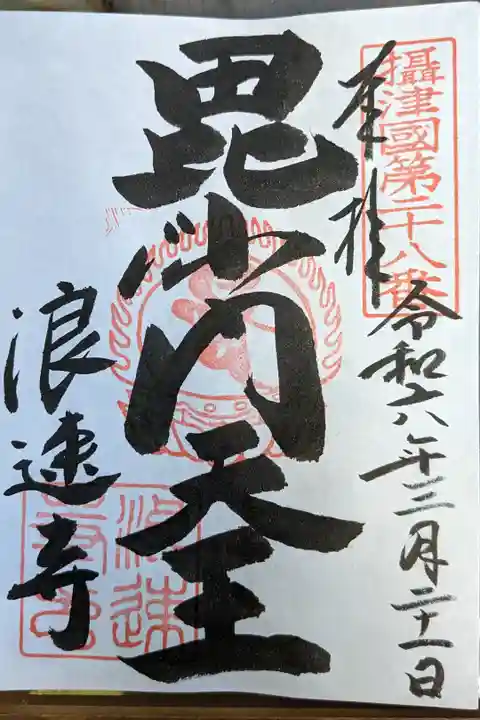 攝津國第二十八番
奉拝
令和六年三月二十一日
毘沙門天王
浪速寺
浪速